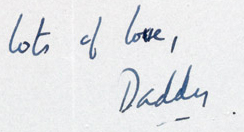 lots of love,
Daddy.